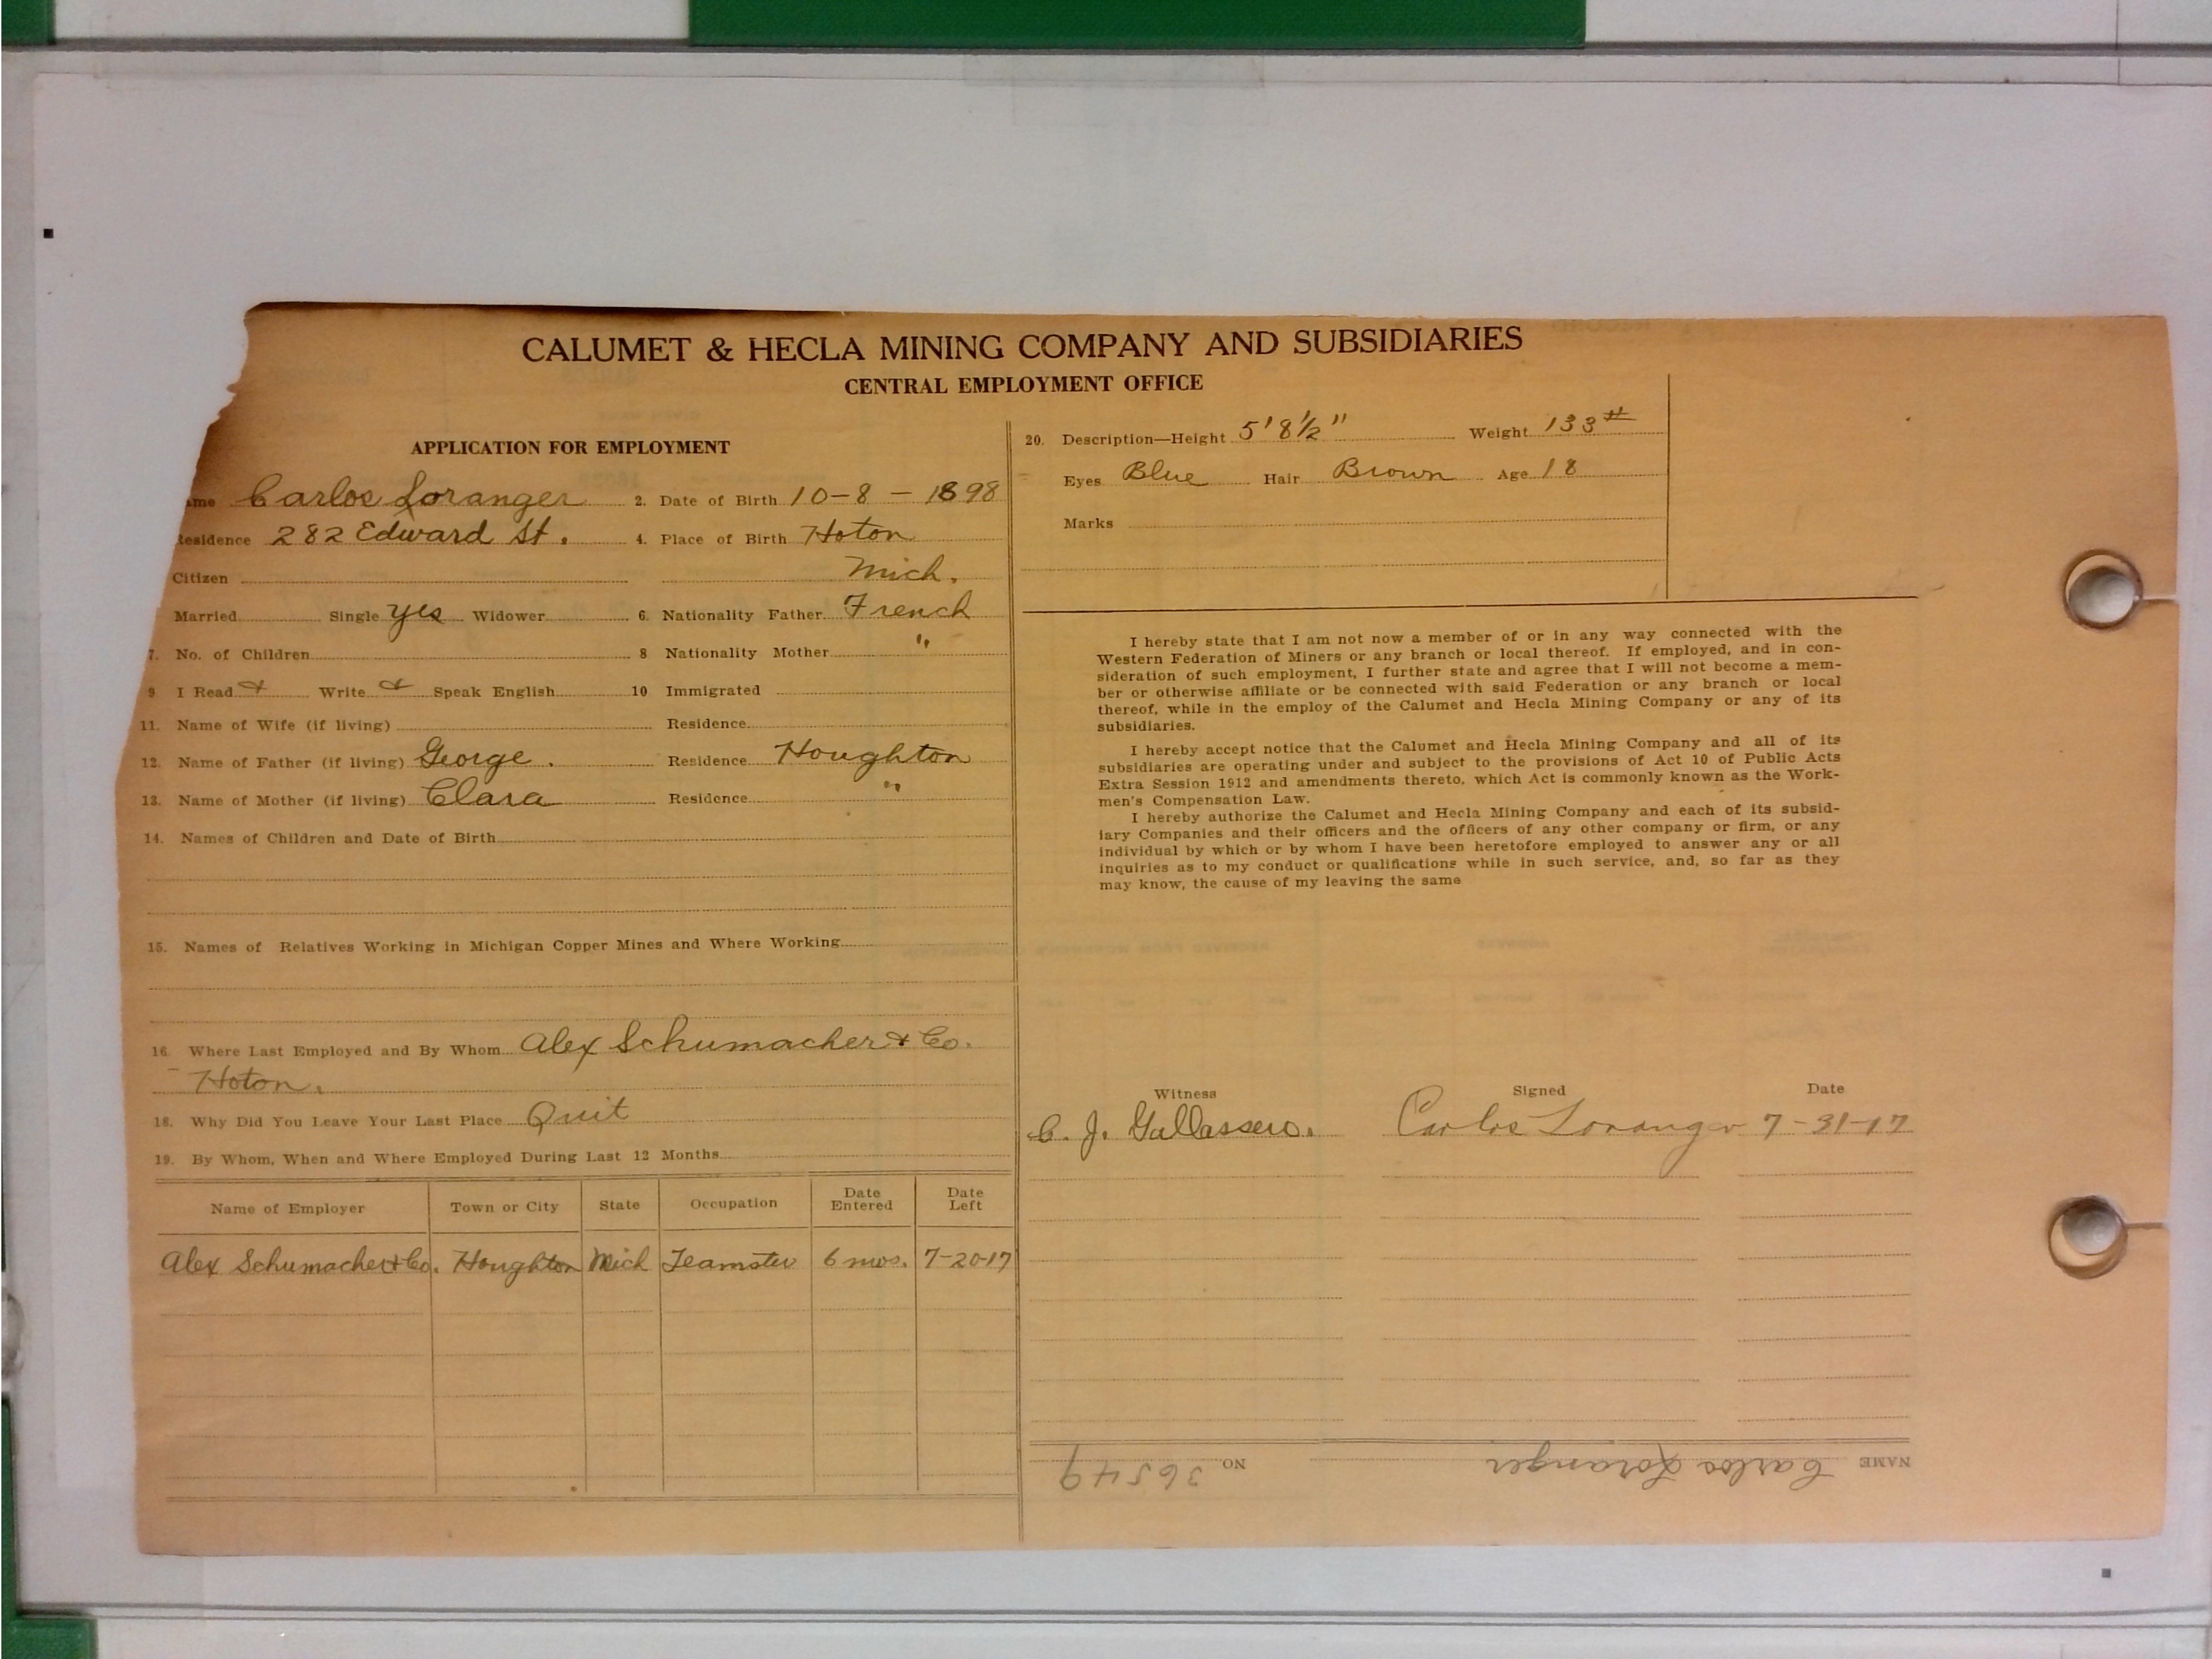 CALUMET & HECLA MINING COMPANY AND SUBSIDIARIES
CENTRAL EMPLOYMENT OFFICE
APPLICATION FOR EMPLOYMENT
ame Carlos Loranger 2. Date of Birth 10-8-1898
Residence 282 Edward St. 4. Place of Birth Hoton
Citizen Mich.
Married Single yes Widower 6. Nationality Father French
7. No. of Children 8 Nationality Mother "
9 I Read & Write & Speak English 10 Immigrated
11. Name of Wife (if living) Residence
12. Name of Father (if living) George. Residence Houghton
13. Name of Mother (if living) Clara Residence "
14. Names of Children and Date of Birth
15. Names of Relatives Working in Michigan Copper Mines and Where Working
16 Where Last Employed and By Whom Alex Schumacher & Co.
Hoton.
18. Why Did You Leave Your Last Place Quit
19. By Whom, When and Where Employed During Last 12 Months
Name of Employer Town or City State Occupation Date Entered Date Left
Alex Schumacher & Co. Houghton Mich Teamster 6 mos. 7-20-17
20. Description—Height 5'8½" Weight 133#
Eyes Blue Hair Brown Age 18
Marks
I hereby state that I am not now a member of or in any way connected with the
Western Federation of Miners or any branch or local thereof. If employed, and in con-
sideration of such employment, I further state and agree that I will not become a mem-
ber or otherwise affiliate or be connected with said Federation or any branch or local
thereof, while in the employ of the Calumet and Hecla Mining Company or any of its
subsidiaries.
I hereby accept notice that the Calumet and Hecla Mining Company and all of its
subsidiaries are operating under and subject to the provisions of Act 10 of Public Acts
Extra Session 1912 and amendments thereto, which Act is commonly known as the Work-
men's Compensation Law.
I hereby authorize the Calumet and Hecla Mining Company and each of its subsid-
iary Companies and their officers and the officers of any other company or firm, or any
individual by which or by whom I have been heretofore employed to answer any or all
inquiries as to my conduct or qualifications while in such service, and, so far as they
may know, the cause of my leaving the same
Witness Signed Date
C. J. Gallassero. Carlos Loranger 7-31-17
NAME Carlos Loranger NO 36549